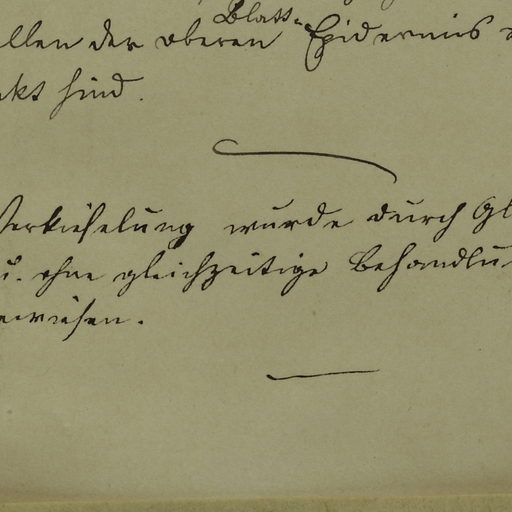 Blatt-
ellen der oberen Epidermis
kt sind.
Verkieselung wurde durch Gl
u. ohne gleichzeitige Behandlu
ewiesen.